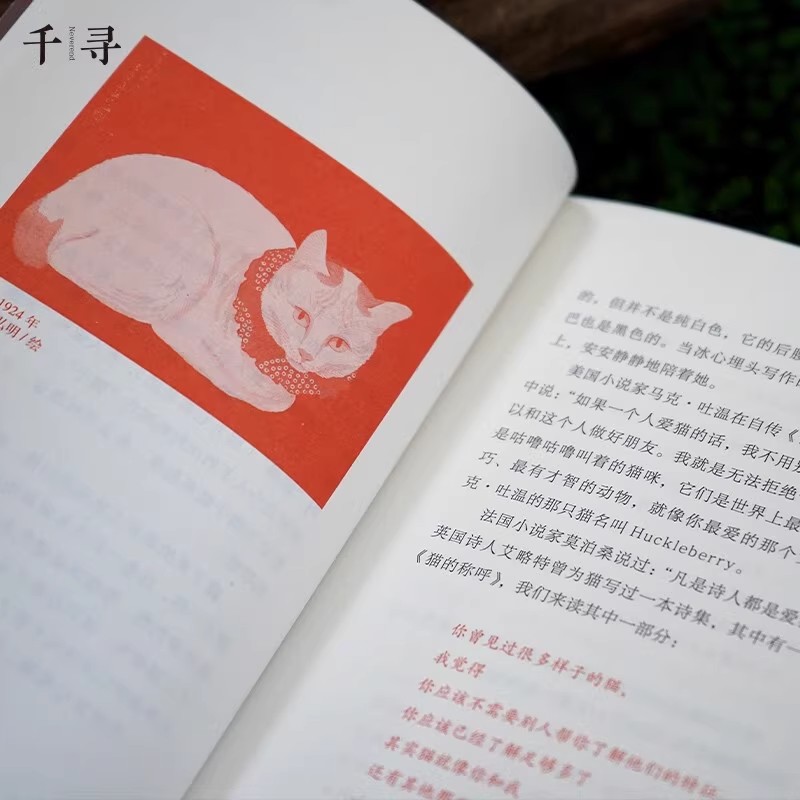 千寻
Neverend
1924 年
弘明 / 绘
的，但并不是纯白色，它的后腿
巴也是黑色的。当冰心埋头写作
上，安安静静地陪着她。
美国小说家马克·吐温在自传《
中说：“如果一个人爱猫的话，我不用
以和这个人做好朋友。我就是无法拒绝
是咕噜咕噜叫着的猫咪，它们是世界上最
巧、最有才智的动物，就像你最爱的那个
克·吐温的那只猫名叫 Huckleberry。
法国小说家莫泊桑说过：“凡是诗人都是爱
英国诗人艾略特曾为猫写过一本诗集，其中有一
《猫的称呼》，我们来读其中一部分：
你曾见过很多样子的猫，
我觉得
你应该不需要别人帮你了解他们的特征
你应该已经了解足够多了
其实猫就像你和我
还有其他那